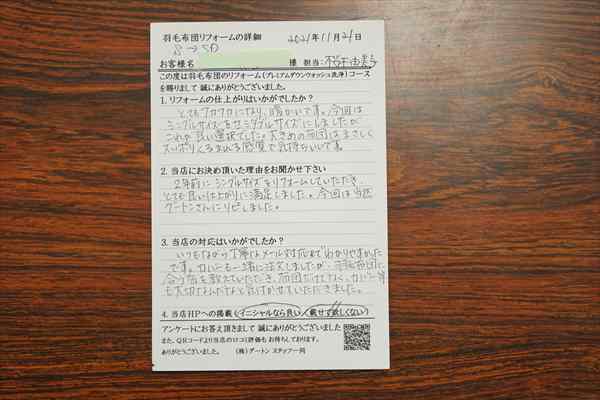 羽毛布団リフォームの詳細 2021年11月21日
S→SD
お客様名 様 担当:
この度は羽毛布団のリフォーム(プレミアムダウンウォッシュ洗浄)コース
を賜りまして 誠にありがとうございました。
1. リフォームの仕上がりはいかがでしたか?
とてもフカフカになり、暖かいです。今回は
シングルサイズをセミダブルサイズにしましたが
これが良い選択でした。大きめの布団はまさしく
スッポリくるまれる感覚で気持ちいいです
2. 当店にお決め頂いた理由をお聞かせ下さい
2年前にシングルサイズをリフォームしていただき、
とても良い仕上がりに満足しました。今回は当然
ダートンさんにリピしました。
3. 当店の対応はいかがでしたか?
いつもながら丁寧なメール対応でわかりやすかった
です。カバーも一緒に注文しましたが、羽毛布団に
合う店を教えていただき、布団だけでなく、カバー等
も大切なんだなと気付かせていただきました。
4. 当店HPへの掲載(イニシャルなら良い/載せて欲しくない)
アンケートにお答え頂きまして 誠にありがとうございました
また、QRコードより当店の口コミ評価も お待ちしております。
ありがとうございました。 (株)ダートン スタッフ一同